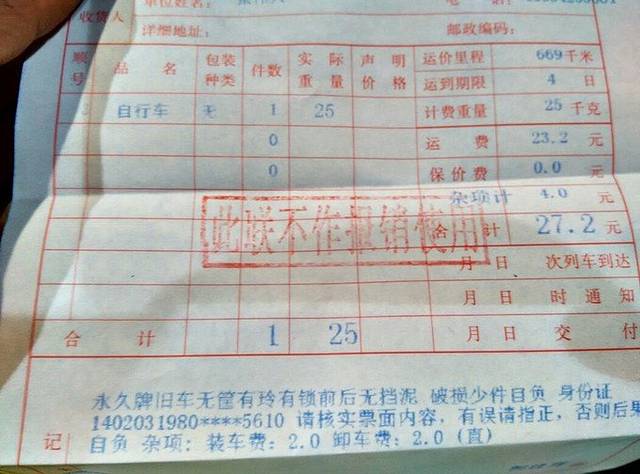 单位姓名：
电 话：
收货人
详细地址：
邮政编码：
顺号 品 名 包装种类 件数 实际重量 声明价格 运价里程 669千米
运到期限 4 日
自行车 无 1 25 计费重量 25 千克
0 运 费 23.2 元
0 保价费 0.0 元
杂项计 4.0 元
此联不作报销使用
合 计 27.2 元
月 日 次列车到达
月 日 时通知
合 计 1 25 月 日 交 付
永久牌旧车无筐有玲有锁前后无挡泥 破损少件自负 身份证
1402031980****5610 请核实票面内容，有误请指正，否则后果
记 自负 杂项：装车费：2.0 卸车费：2.0 (直)